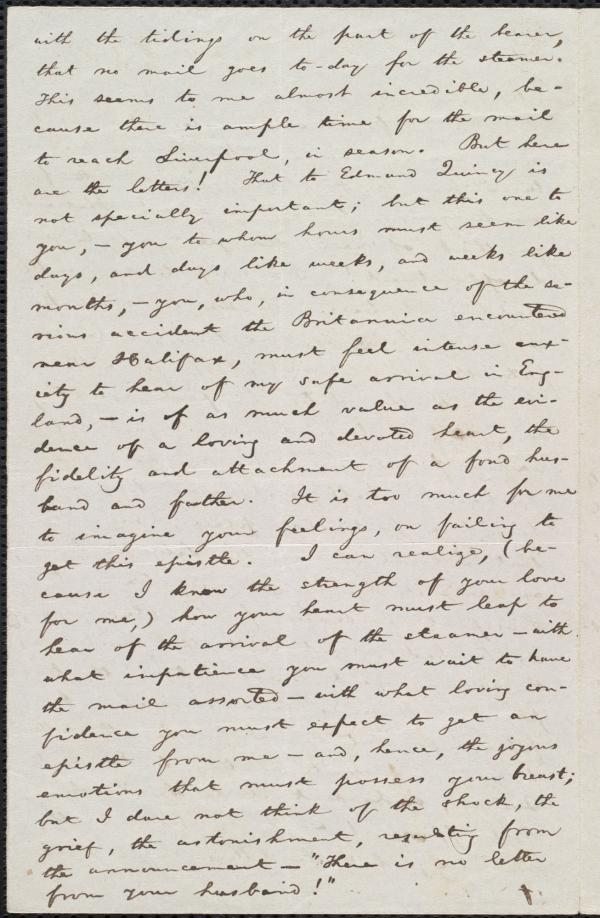 with the tidings on the part of the bearer,
that no mail goes to-day for the steamer.
This seems to me almost incredible, be-
cause there is ample time for the mail
to reach Liverpool, in season. But here
are the letters! That to Edmund Quincy is
not specially important; but this one to
you, – you to whom hours must seem like
days, and days like weeks, and weeks like
months, – you, who, in consequence of the se-
rious accident the Britannia encountered
near Halifax, must feel intense anx-
iety to hear of my safe arrival in Eng-
land, – is of as much value as the evi-
dence of a loving and devoted heart, the
fidelity and attachment of a fond hus-
band and father. It is too much for me
to imagine your feelings, on failing to
get this epistle. I can realize, (be-
cause I know the strength of your love
for me,) how your heart must leap to
hear of the arrival of the steamer – with
what impatience you must wait to have
the mail assorted – with what loving con-
fidence you must expect to get an
epistle from me – and, hence, the joyous
emotions that must possess your breast;
but I dare not think of the shock, the
grief, the astonishment, resulting from
the announcement – "There is no letter
from your husband!"